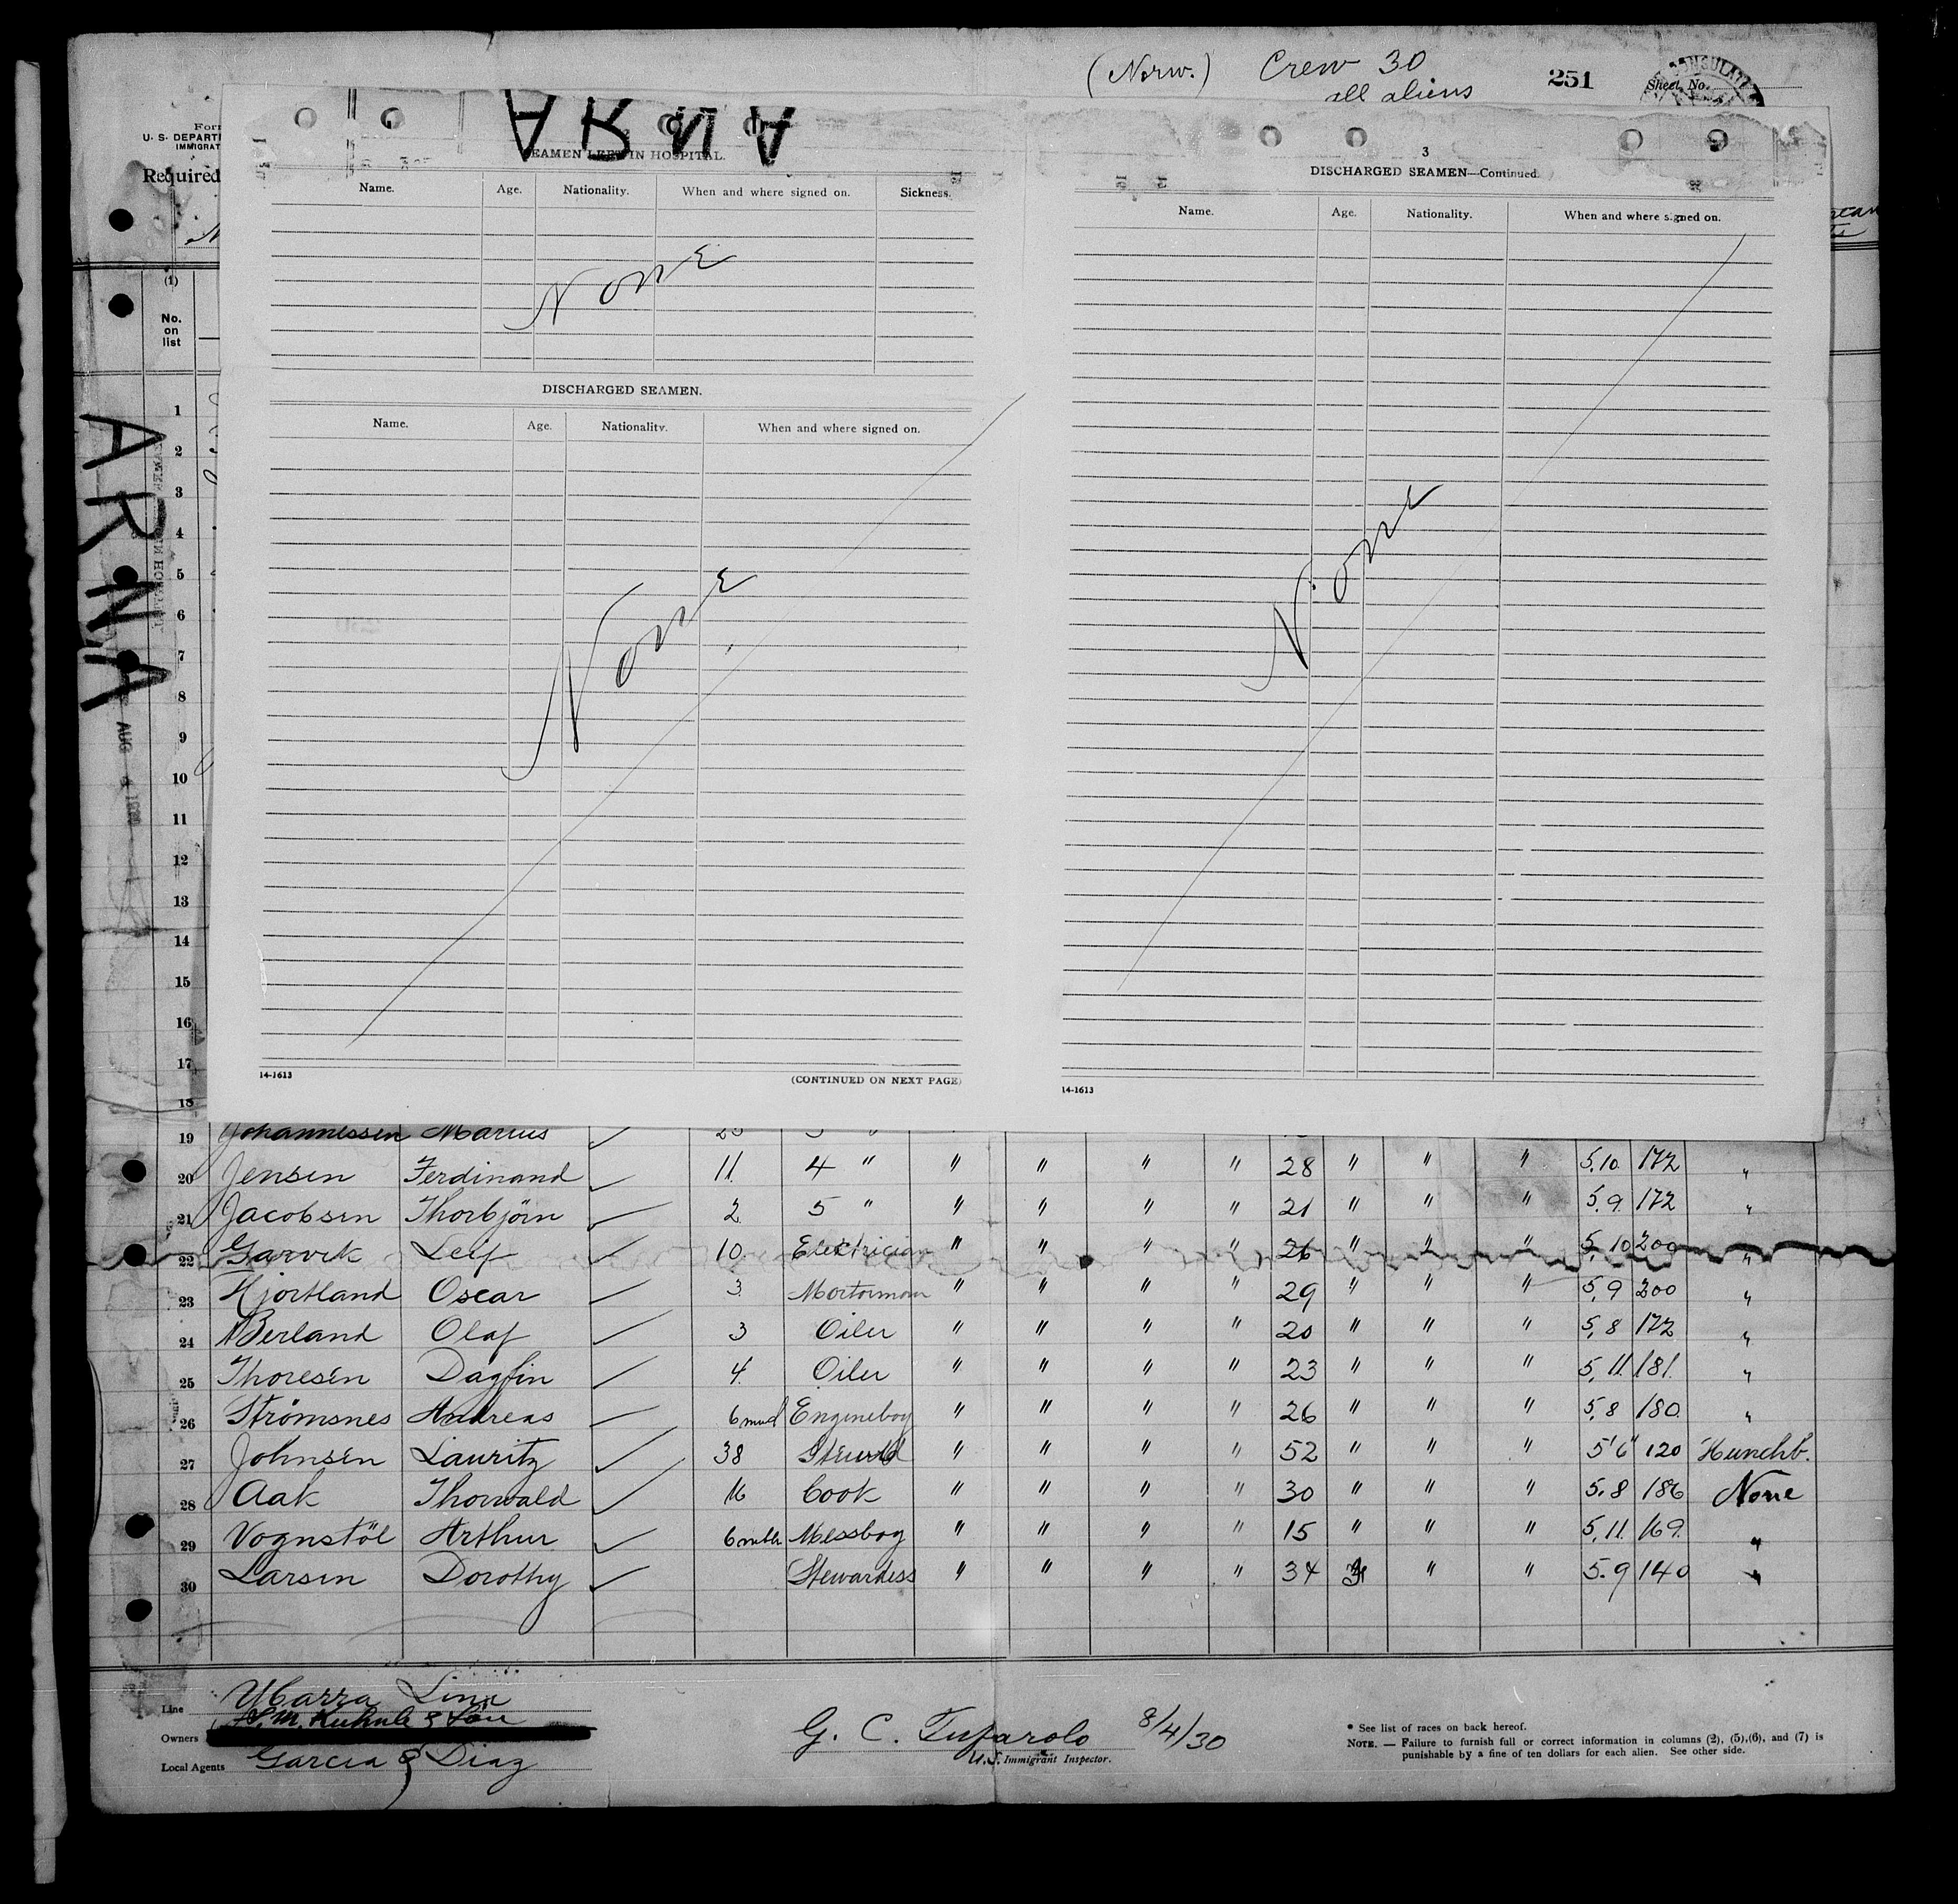 (Norw.) Crew 30
all aliens
251
Sheet No.
U. S. DEPARTM
IMMIGRAT
Required
ARNA
SEAMEN LEFT IN HOSPITAL.
Name. Age. Nationality. When and where signed on. Sickness.
None
DISCHARGED SEAMEN.
Name. Age. Nationality. When and where signed on.
None
14-1613
(CONTINUED ON NEXT PAGE)
3
DISCHARGED SEAMEN—Continued.
Name. Age. Nationality. When and where signed on.
None
14-1613
(1)
No.
on
list
ARNA
AUG 4
1
2
3
4
5
6
7
8
9
10
11
12
13
14
15
16
17
18
19 Johannessen Marius
20 Jensen Ferdinand 11 4 " " " " " 28 " " " 5.10. 172 "
21 Jacobsen Thorbjörn 2 5 " " " " " 21 " " " 5.9. 172 "
22 Garvik Leif 10 Electrician " " " " 26 " " " 5.10 200 "
23 Hjortland Oscar 3 Mortorman " " " " 29 " " " 5.9 200 "
24 Berland Olaf 3 Oiler " " " " 20 " " " 5.8 172 "
25 Thoresen Dagfin 4 Oiler " " " " 23 " " " 5.11. 181. "
26 Strømsnes Andreas 6 Engineboy " " " " 26 " " " 5.8 180. "
27 Johnsen Lauritz 38 " " " " 52 " " " 5'6" 120 Hunchb.
28 Aak Thorvald 16 Cook " " " " 30 " " " 5.8 186 None
29 Vognstöl Arthur 6 Messboy " " " " 15 " " " 5.11. 169. "
30 Larsen Dorothy Stewardess " " " " 34 " " 5.9 140 "
Line Ybarra Line
Owners
Local Agents Garcia & Diaz
G. C. Tufarolo 8/4/30
U.S. Immigrant Inspector.
* See list of races on back hereof.
NOTE. — Failure to furnish full or correct information in columns (2), (5),(6), and (7) is
punishable by a fine of ten dollars for each alien. See other side.